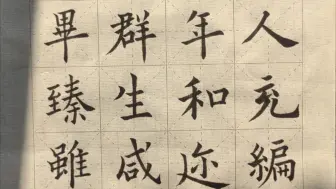 人充編
年和迩
群生咸
畢臻雖